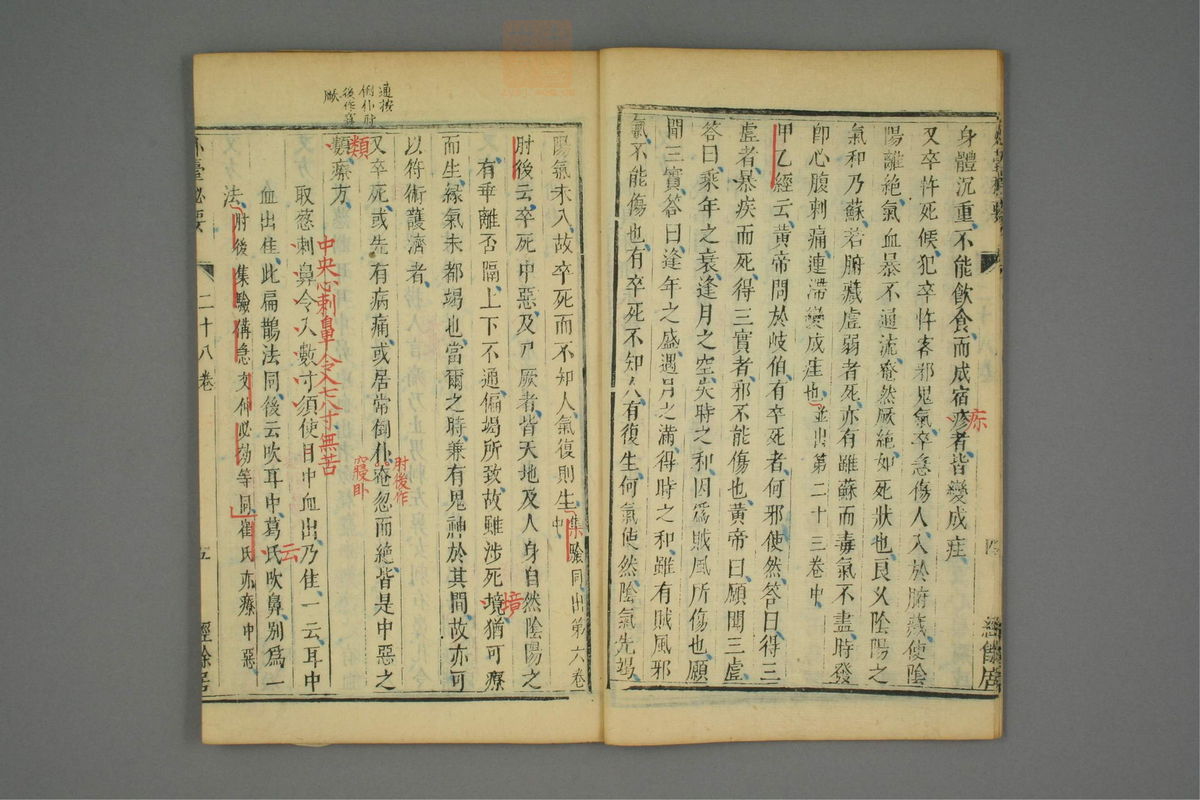 身體沉重不能飲食而成宿疹者皆變成疰
疢
又卒忤死候犯卒忤客邪鬼氣卒急傷人入於腑藏使陰
陽離絕氣血暴不通流奄然厥絕如死狀也良久陰陽之
氣和乃蘇若腑藏虛弱者死亦有雖蘇而毒氣不盡時發
卽心腹刺痛連滯變成疰也並出第二十三卷中
甲乙經云黃帝問於岐伯有卒死者何邪使然答曰得三
虛者暴疾而死得三實者邪不能傷也黃帝曰願聞三虛
答曰乘年之衰逢月之空失時之和因爲賊風所傷也願
聞三實答曰逢年之盛遇月之滿得時之和雖有賊風邪
氣不能傷也有卒死不知人有復生何氣使然陰氣先竭
陽氣未入故卒死而不知人氣復則生集驗同出第六卷
中
肘後云卒死中惡及尸厥者皆天地及人身自然陰陽之
氣有乖離否隔上下不通偏竭所致故雖涉死境猶可療
境
而生緣氣未都竭也當爾之時兼有鬼神於其間故亦可
以符術護濟者
又卒死或先有病痛或居常倒仆奄忽而絕皆是中惡之
肘後作
寢卧
類療方
類
連按
倒仆肘
後作寢
取葱刺鼻令入數寸須使目中血出乃佳一云耳中
中央心刺鼻令入七八寸無苦
血出佳此扁鵲法同後云吹耳中葛氏吹鼻別爲一
云
法肘後集驗備急文仲必効等同崔氏亦療中惡
外臺秘要 二十八卷 五 經餘居